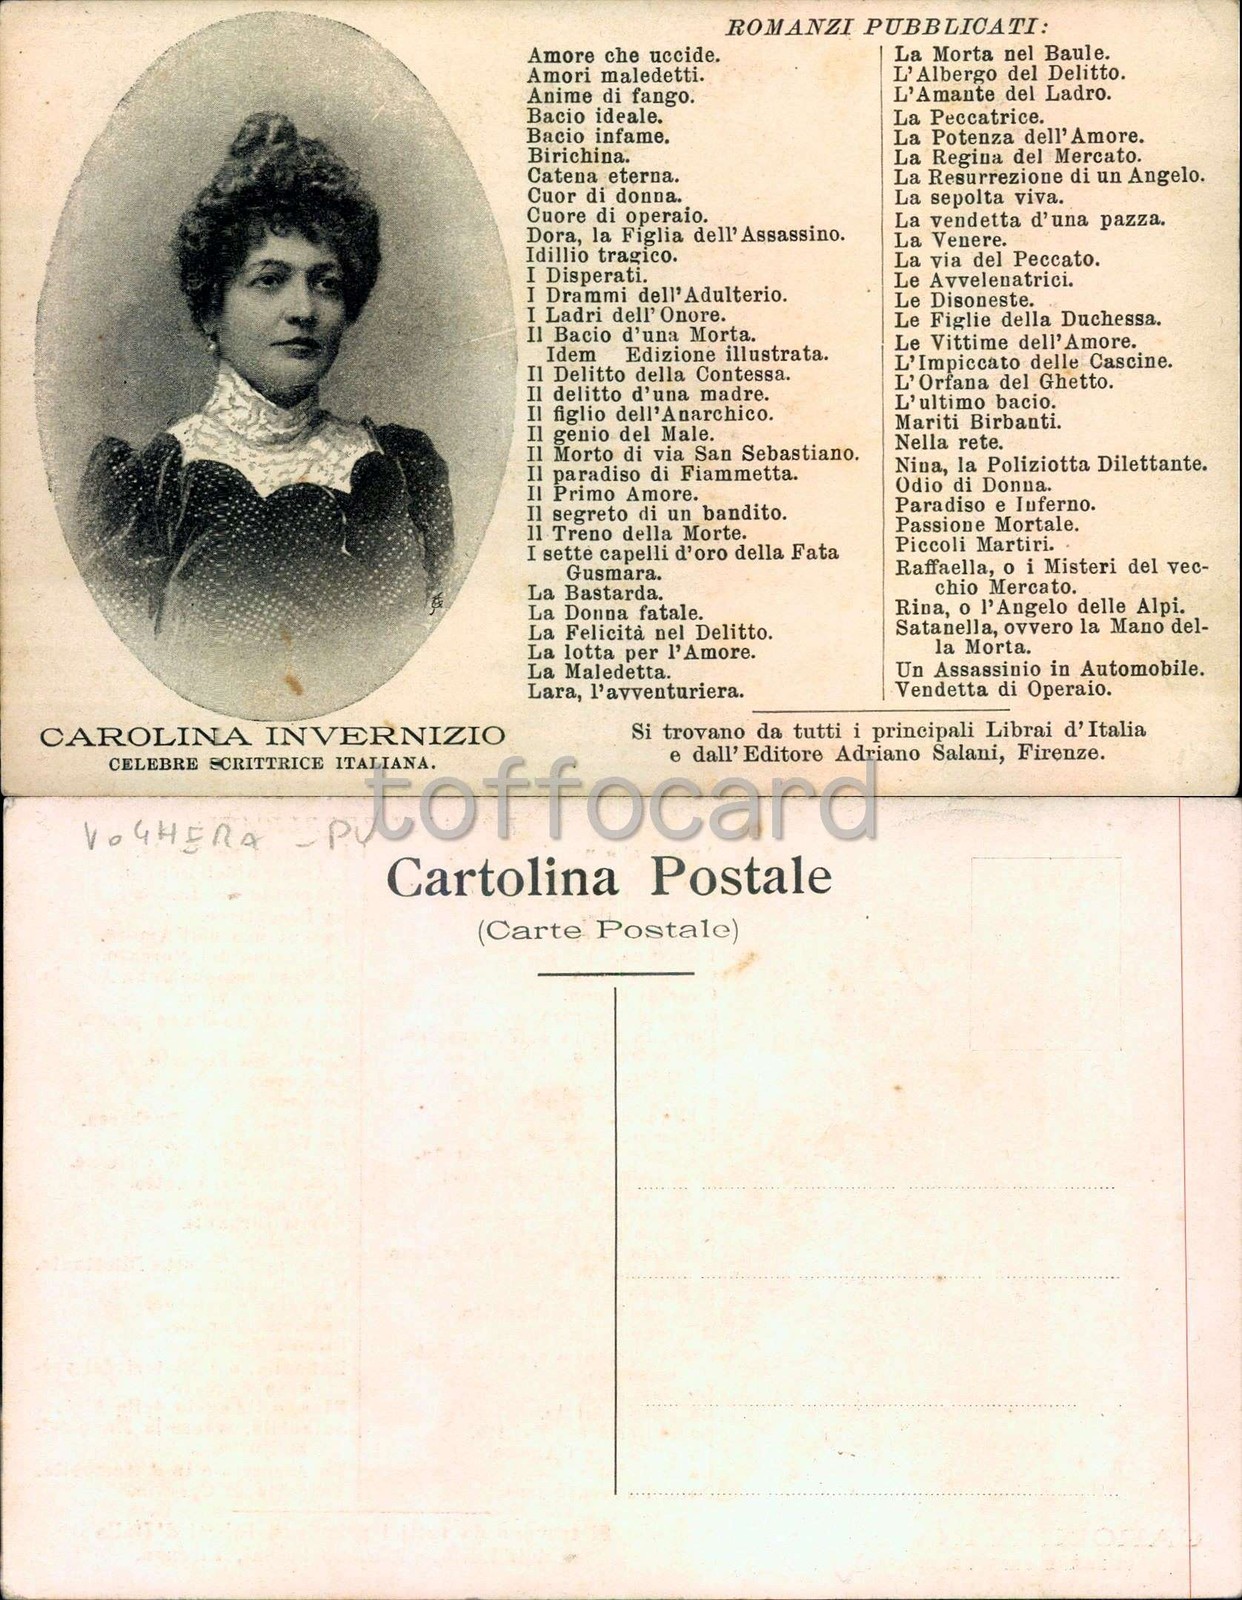 ROMANZI PUBBLICATI:
Amore che uccide.
Amori maledetti.
Anime di fango.
Bacio ideale.
Bacio infame.
Birichina.
Catena eterna.
Cuor di donna.
Cuore di operaio.
Dora, la Figlia dell'Assassino.
Idillio tragico.
I Disperati.
I Drammi dell'Adulterio.
I Ladri dell'Onore.
Il Bacio d'una Morta.
Idem Edizione illustrata.
Il Delitto della Contessa.
Il delitto d'una madre.
Il figlio dell'Anarchico.
Il genio del Male.
Il Morto di via San Sebastiano.
Il paradiso di Fiammetta.
Il Primo Amore.
Il segreto di un bandito.
Il Treno della Morte.
I sette capelli d'oro della Fata
Gusmara.
La Bastarda.
La Donna fatale.
La Felicità nel Delitto.
La lotta per l'Amore.
La Maledetta.
Lara, l'avventuriera.
La Morta nel Baule.
L'Albergo del Delitto.
L'Amante del Ladro.
La Peccatrice.
La Potenza dell'Amore.
La Regina del Mercato.
La Resurrezione di un Angelo.
La sepolta viva.
La vendetta d'una pazza.
La Venere.
La via del Peccato.
Le Avvelenatrici.
Le Disoneste.
Le Figlie della Duchessa.
Le Vittime dell'Amore.
L'Impiccato delle Cascine.
L'Orfana del Ghetto.
L'ultimo bacio.
Mariti Birbanti.
Nella rete.
Nina, la Poliziotta Dilettante.
Odio di Donna.
Paradiso e Inferno.
Passione Mortale.
Piccoli Martiri.
Raffaella, o i Misteri del vec-
chio Mercato.
Rina, o l'Angelo delle Alpi.
Satanella, ovvero la Mano del-
la Morta.
Un Assassinio in Automobile.
Vendetta di Operaio.
CAROLINA INVERNIZIO
CELEBRE SCRITTRICE ITALIANA.
Si trovano da tutti i principali Librai d'Italia
e dall'Editore Adriano Salani, Firenze.
toffocard
VOGHERA - PV
Cartolina Postale
(Carte Postale)